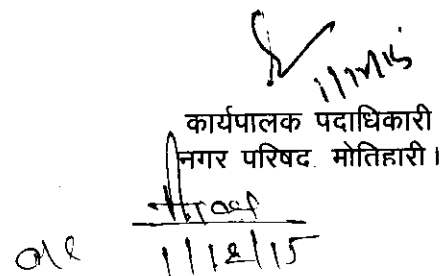 1/12/15
कार्यपालक पदाधिकारी
नगर परिषद मोतिहारी।
1/12/15